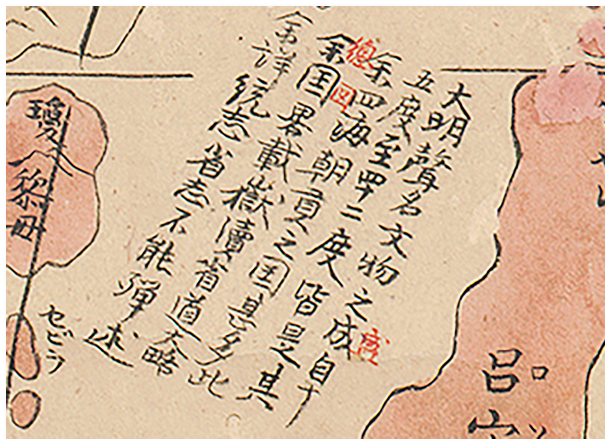 大明聲名文物之成自十
盛
五度至四二度皆是其
余四海朝貢之国甚多此
總図
余国畧載嶽瀆省道大略
余詳統志省志不能殫述
瓊
黎母
セビラ
呂
ロ